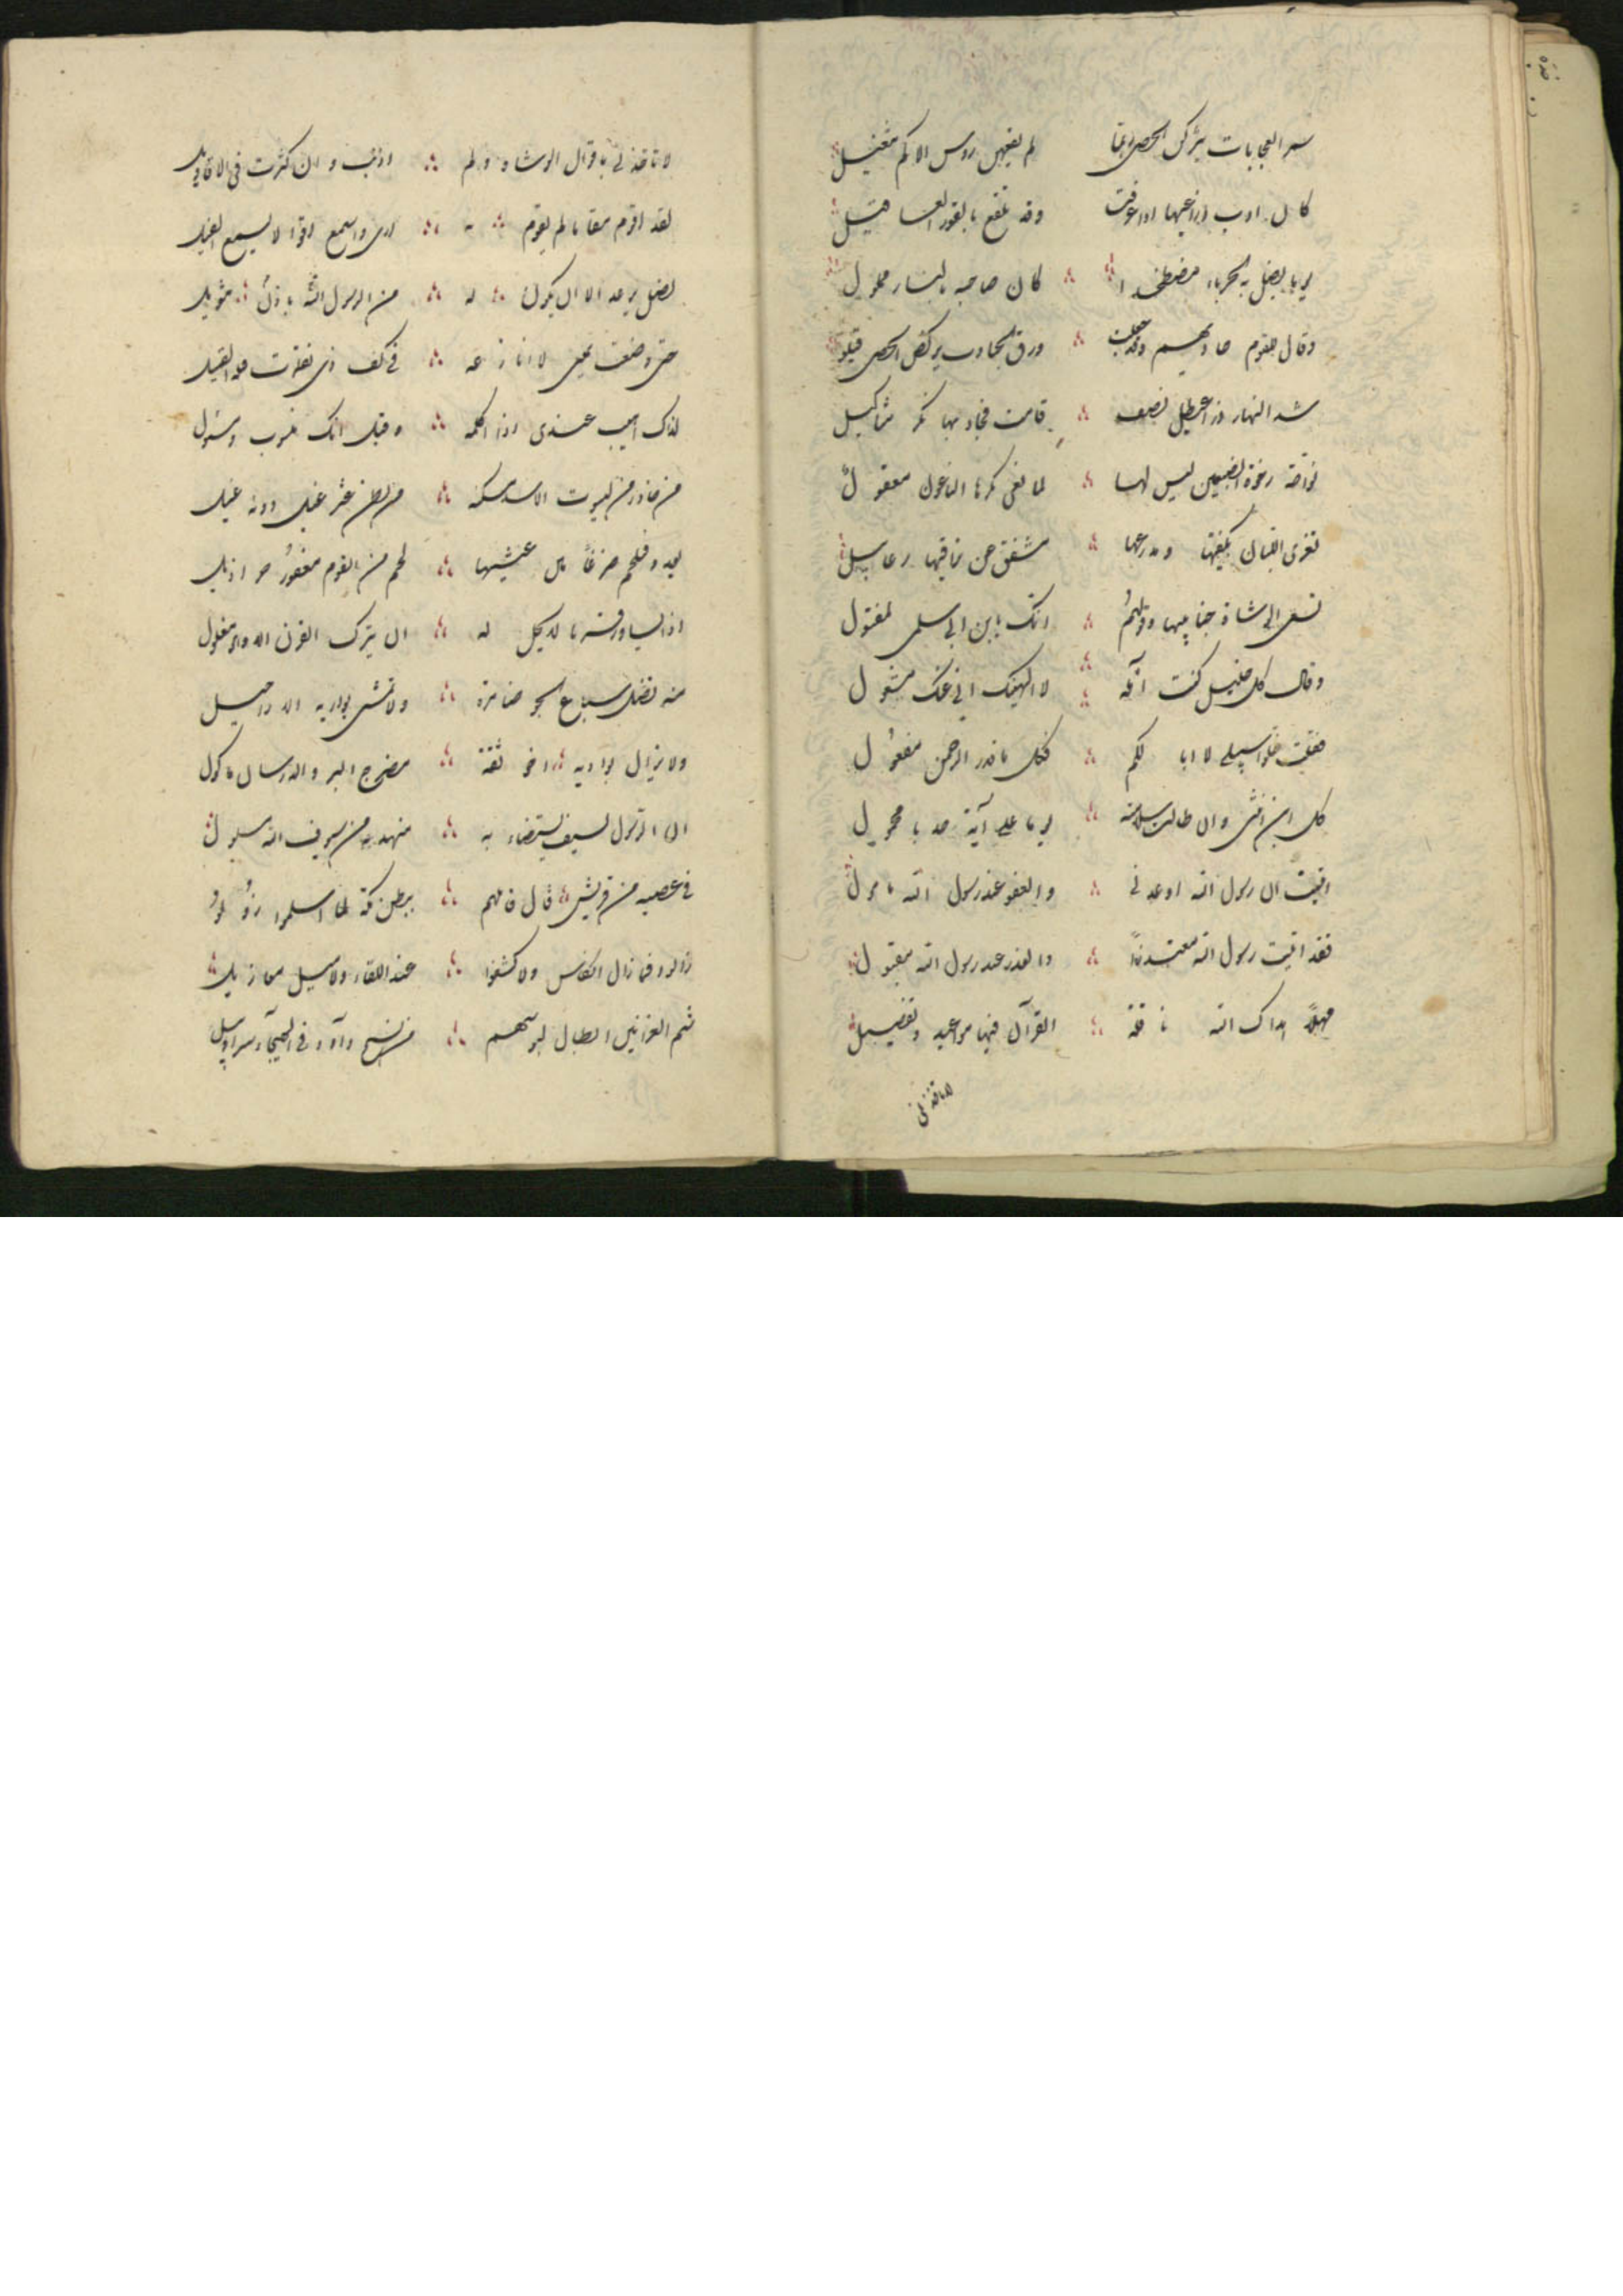 سمر العجايات يتركن الحصى زيما لم يقيهن روس الاكم تنعيل
كان اوب ذراعيها اذا عرقت وقد تلفع بالقور العساقيل
يوما يظل به الحرباء مصطخدا كان صاحيه بالنار مملول
وقال للقوم حاديهم وقد جعلت ورق الجنادب يركضن الحصى قيلوا
شد النهار ذراعا عيطل نصف قامت فجاوبها نكر مثاكيل
نواحة رخوة الضبعين ليس لها لما نعى بكرها الناعون معقول
تفرى اللبان بكفيها ومدرعها مشقق عن تراقيها رعابيل
تسعى الوشاة جنابيها وقولهم انك يا ابن ابى سلمى لمقتول
وقال كل خليل كنت آمله لا الهينك انى عنك مشغول
فقلت خلوا سبيلى لا ابا لكم فكل ما قدر الرحمن مفعول
كل ابن انثى وان طالت سلامته يوما على آلة حدباء محمول
انبئت ان رسول الله اوعدنى والعفو عند رسول الله مامول
فقد اتيت رسول الله معتذرا والعذر عند رسول الله مقبول
مهلا هداك الله نافلة القرآن فيها مواعيد وتفصيل
لا تاخذنى
لا تاخذنى باقوال الوشاة ولم اذنب وان كثرت فى الاقاويل
لقد اقوم مقاما لم يقوم به ارى واسمع لو لا يسمع الفيل
لظل يرعد الا ان يكون له من الرسول الله باذن تنويل
حتى وضعت يمينى لا انازعه فى كف ذى نقمات قيله القيل
لذاك اهيب عندى اذ اكلمه وقيل انك منسوب ومسئول
من خادر من ليوث الاسد مسكنه من بطن عثر غيل دونه غيل
يغدو فيلحم ضرغاما عيشهما لحم من القوم معفور خراذيل
اذا يساور قرنا لا يحل له ان يترك القرن الا وهو مغلول
منه تظل سباع الجو ضامزة ولا تمشى بواديه الاراجيل
ولا يزال بواديه اخو ثقة مضرج البز والدرسان ماكول
ان الرسول لسيف يستضاء به مهند من سيوف الله مسلول
فى عصبة من قريش قال قائلهم ببطن مكة لما اسلموا زولوا
زالوا فما زال انكاس ولا كشف عند اللقاء ولا ميل معازيل
شم العرانين ابطال لبوسهم من نسج داود فى الهيجا سرابيل